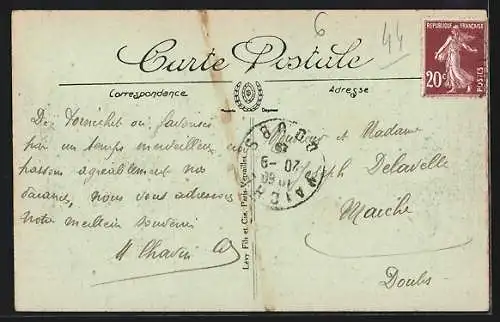 6
44
Carte Postale
REPUBLIQUE FRANÇAISE
20c
POSTES
Correspondance
Adresse
De Pornichet où favorisés
par un temps merveilleux nous
passons agréablement nos
vacances, nous vous adressons
notre meilleur souvenir
Monsieur et Madame
Joseph Delavelle
Maiche
Doubs
MAICHE DOUBS
20 -9
Lévy Fils et Cie, Paris-Versailles